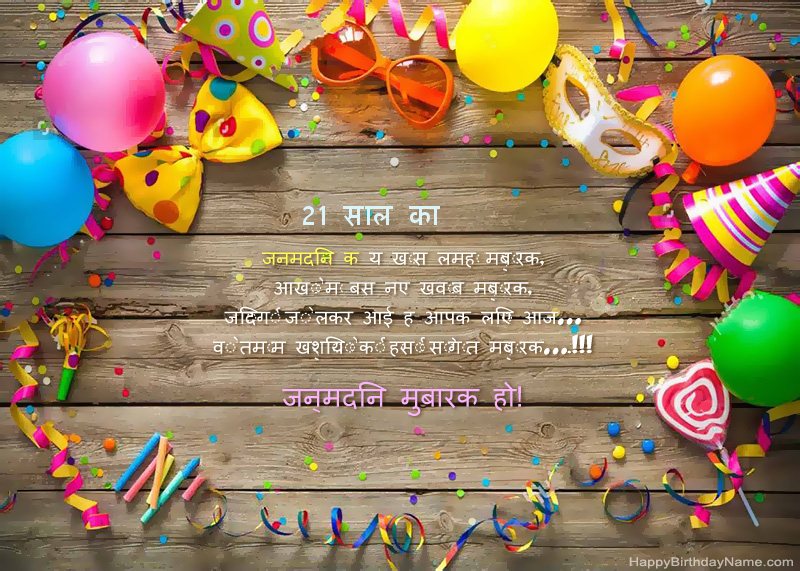 21 साल का
जनमदनि क य ख◌ास लमह◌ा मब◌ुरक,
आख◌ो◌ंम◌े बस नए खव◌ाब मब◌ुरक,
जदिग◌ी ज◌ो लकर आई ह आपक लएि आज...
व◌ो तम◌ाम खशयि◌ो◌ं क◌ी हस◌ी◌ं स◌ौग◌ात मब◌ुरक...!!!
जन्मदनि मुबारक हो!
HappyBirthdayName.com